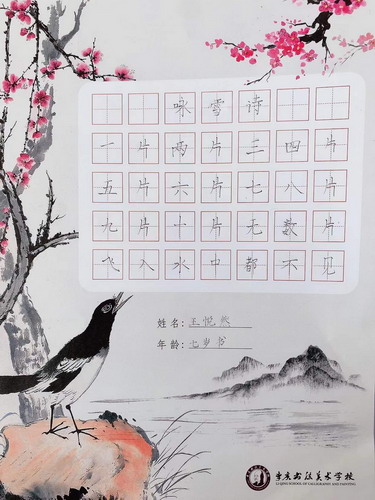 咏雪诗
一片两片三四片
五片六片七八片
九片十片无数片
飞入水中都不见
姓名：王悦然
年龄：七岁书
李庆书法美术学校
LI QING SCHOOL OF CALLIGRAPHY AND PAINTING